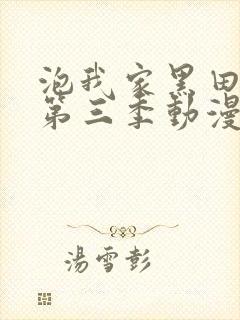 泡我家黑田
第三季動漫
湯雪彭